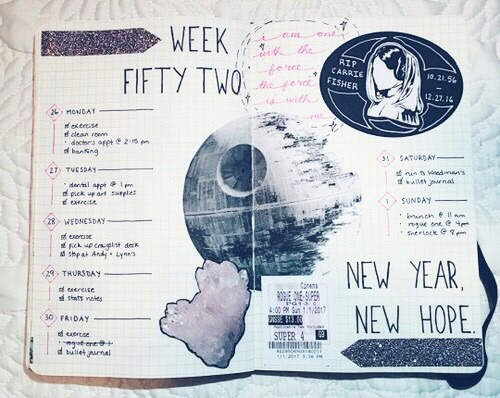 WEEK
FIFTY TWO
26 MONDAY
exercise
clean room
doctors appt @ 2:15 pm
banking
27 TUESDAY
dental appt @ 1pm
pick up art supplies
exercise
28 WEDNESDAY
exercise
pick up craigslist desk
stop at Andy + Lynn's
29 THURSDAY
exercise
stats notes
30 FRIDAY
exercise
rogue one @ 1
bullet journal
i am one
with the
force
the force
is with
me
RIP
CARRIE
FISHER
10.21.56
-
12.27.16
31 SATURDAY
run to Woodman's
bullet journal
1 SUNDAY
brunch @ 11 am
rogue one @ 4pm
sherlock @ 8pm
Cinema
ROGUE ONE-SUPER
PG13
4:00 PM Sun 1/1/2017
$13.00
SUPER 4
1/1/2017 3:36 PM
NEW YEAR,
NEW HOPE.